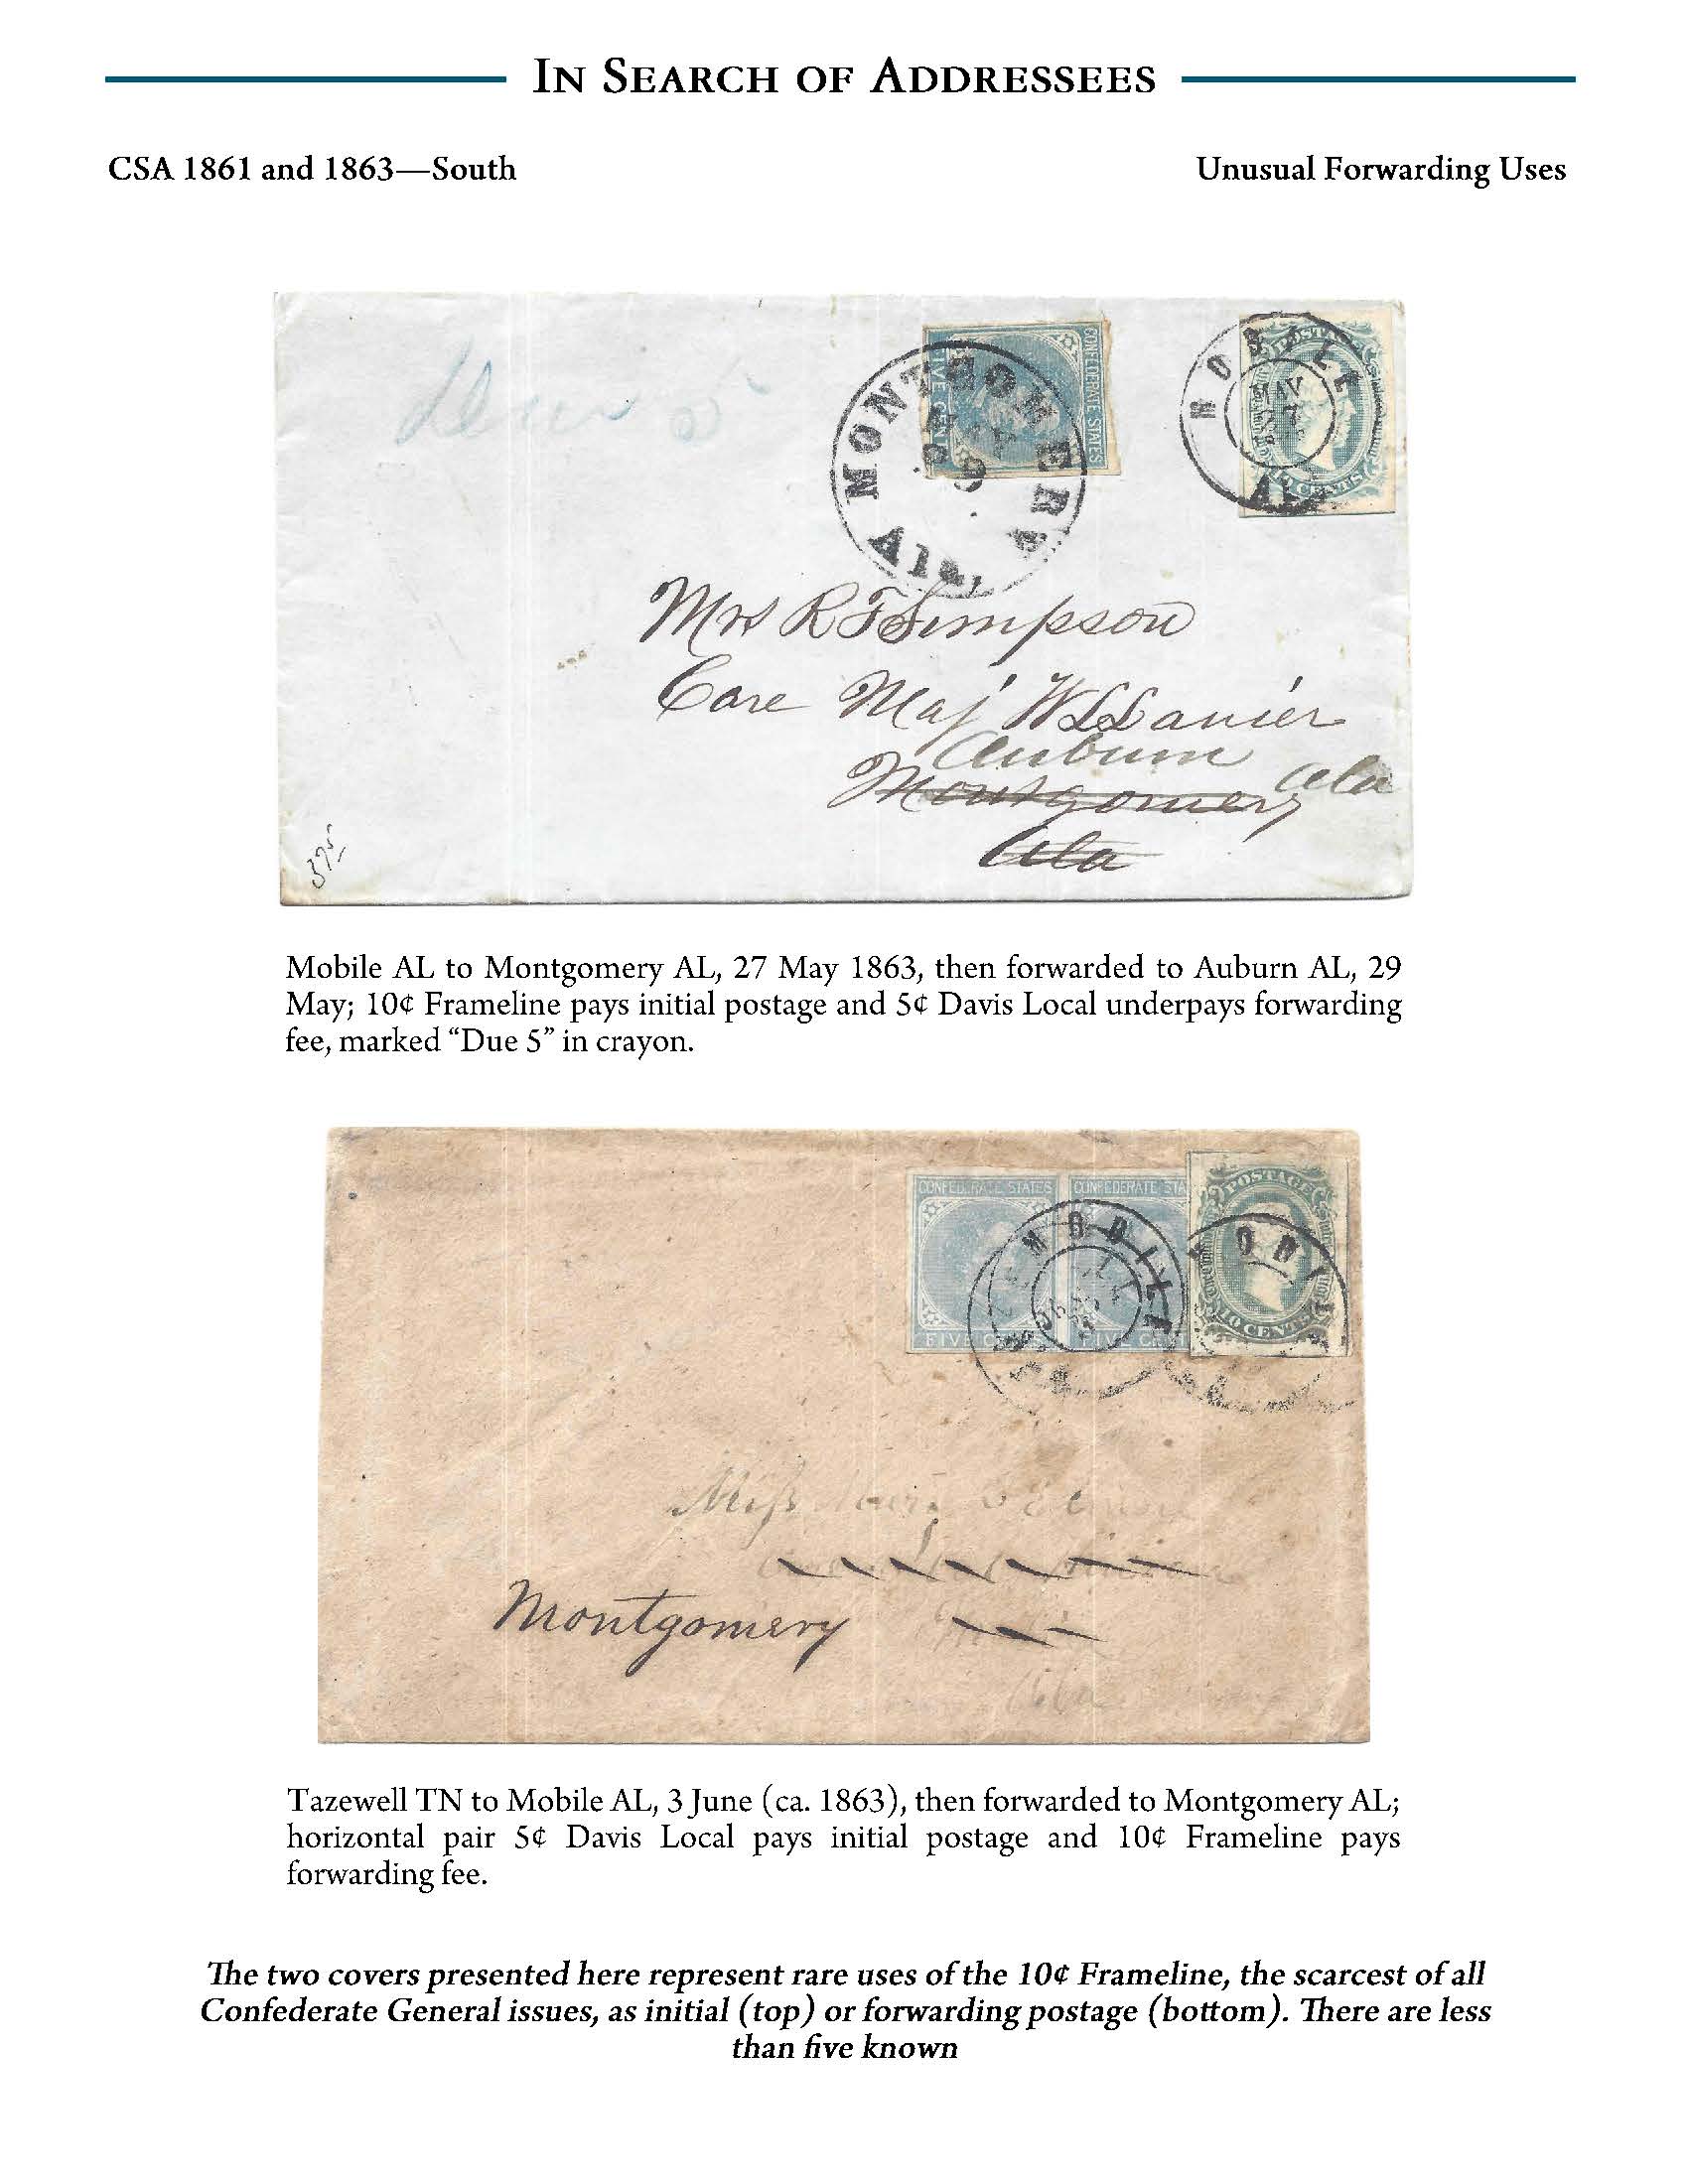 In Search of Addressees
CSA 1861 and 1863—South
Unusual Forwarding Uses
Due 5
CONFEDERATE STATES
FIVE CENTS
MONTGOMERY
MAY
29
Ala.
MOBILE
ALA
POSTAGE
CENTS
Mrs R F Simpson
Care Maj W L Lanier
Auburn
Ala
Montgomery
Ala
375
Mobile AL to Montgomery AL, 27 May 1863, then forwarded to Auburn AL, 29
May; 10¢ Frameline pays initial postage and 5¢ Davis Local underpays forwarding
fee, marked “Due 5” in crayon.
CONFEDERATE STATES
CONFEDERATE STA
POSTAGE
MOBILE
MOBI
FIVE CENTS
FIVE CENT
CENTS
Miss
Montgomery
Ala
Tazewell TN to Mobile AL, 3 June (ca. 1863), then forwarded to Montgomery AL;
horizontal pair 5¢ Davis Local pays initial postage and 10¢ Frameline pays
forwarding fee.
The two covers presented here represent rare uses of the 10¢ Frameline, the scarcest of all
Confederate General issues, as initial (top) or forwarding postage (bottom). There are less
than five known